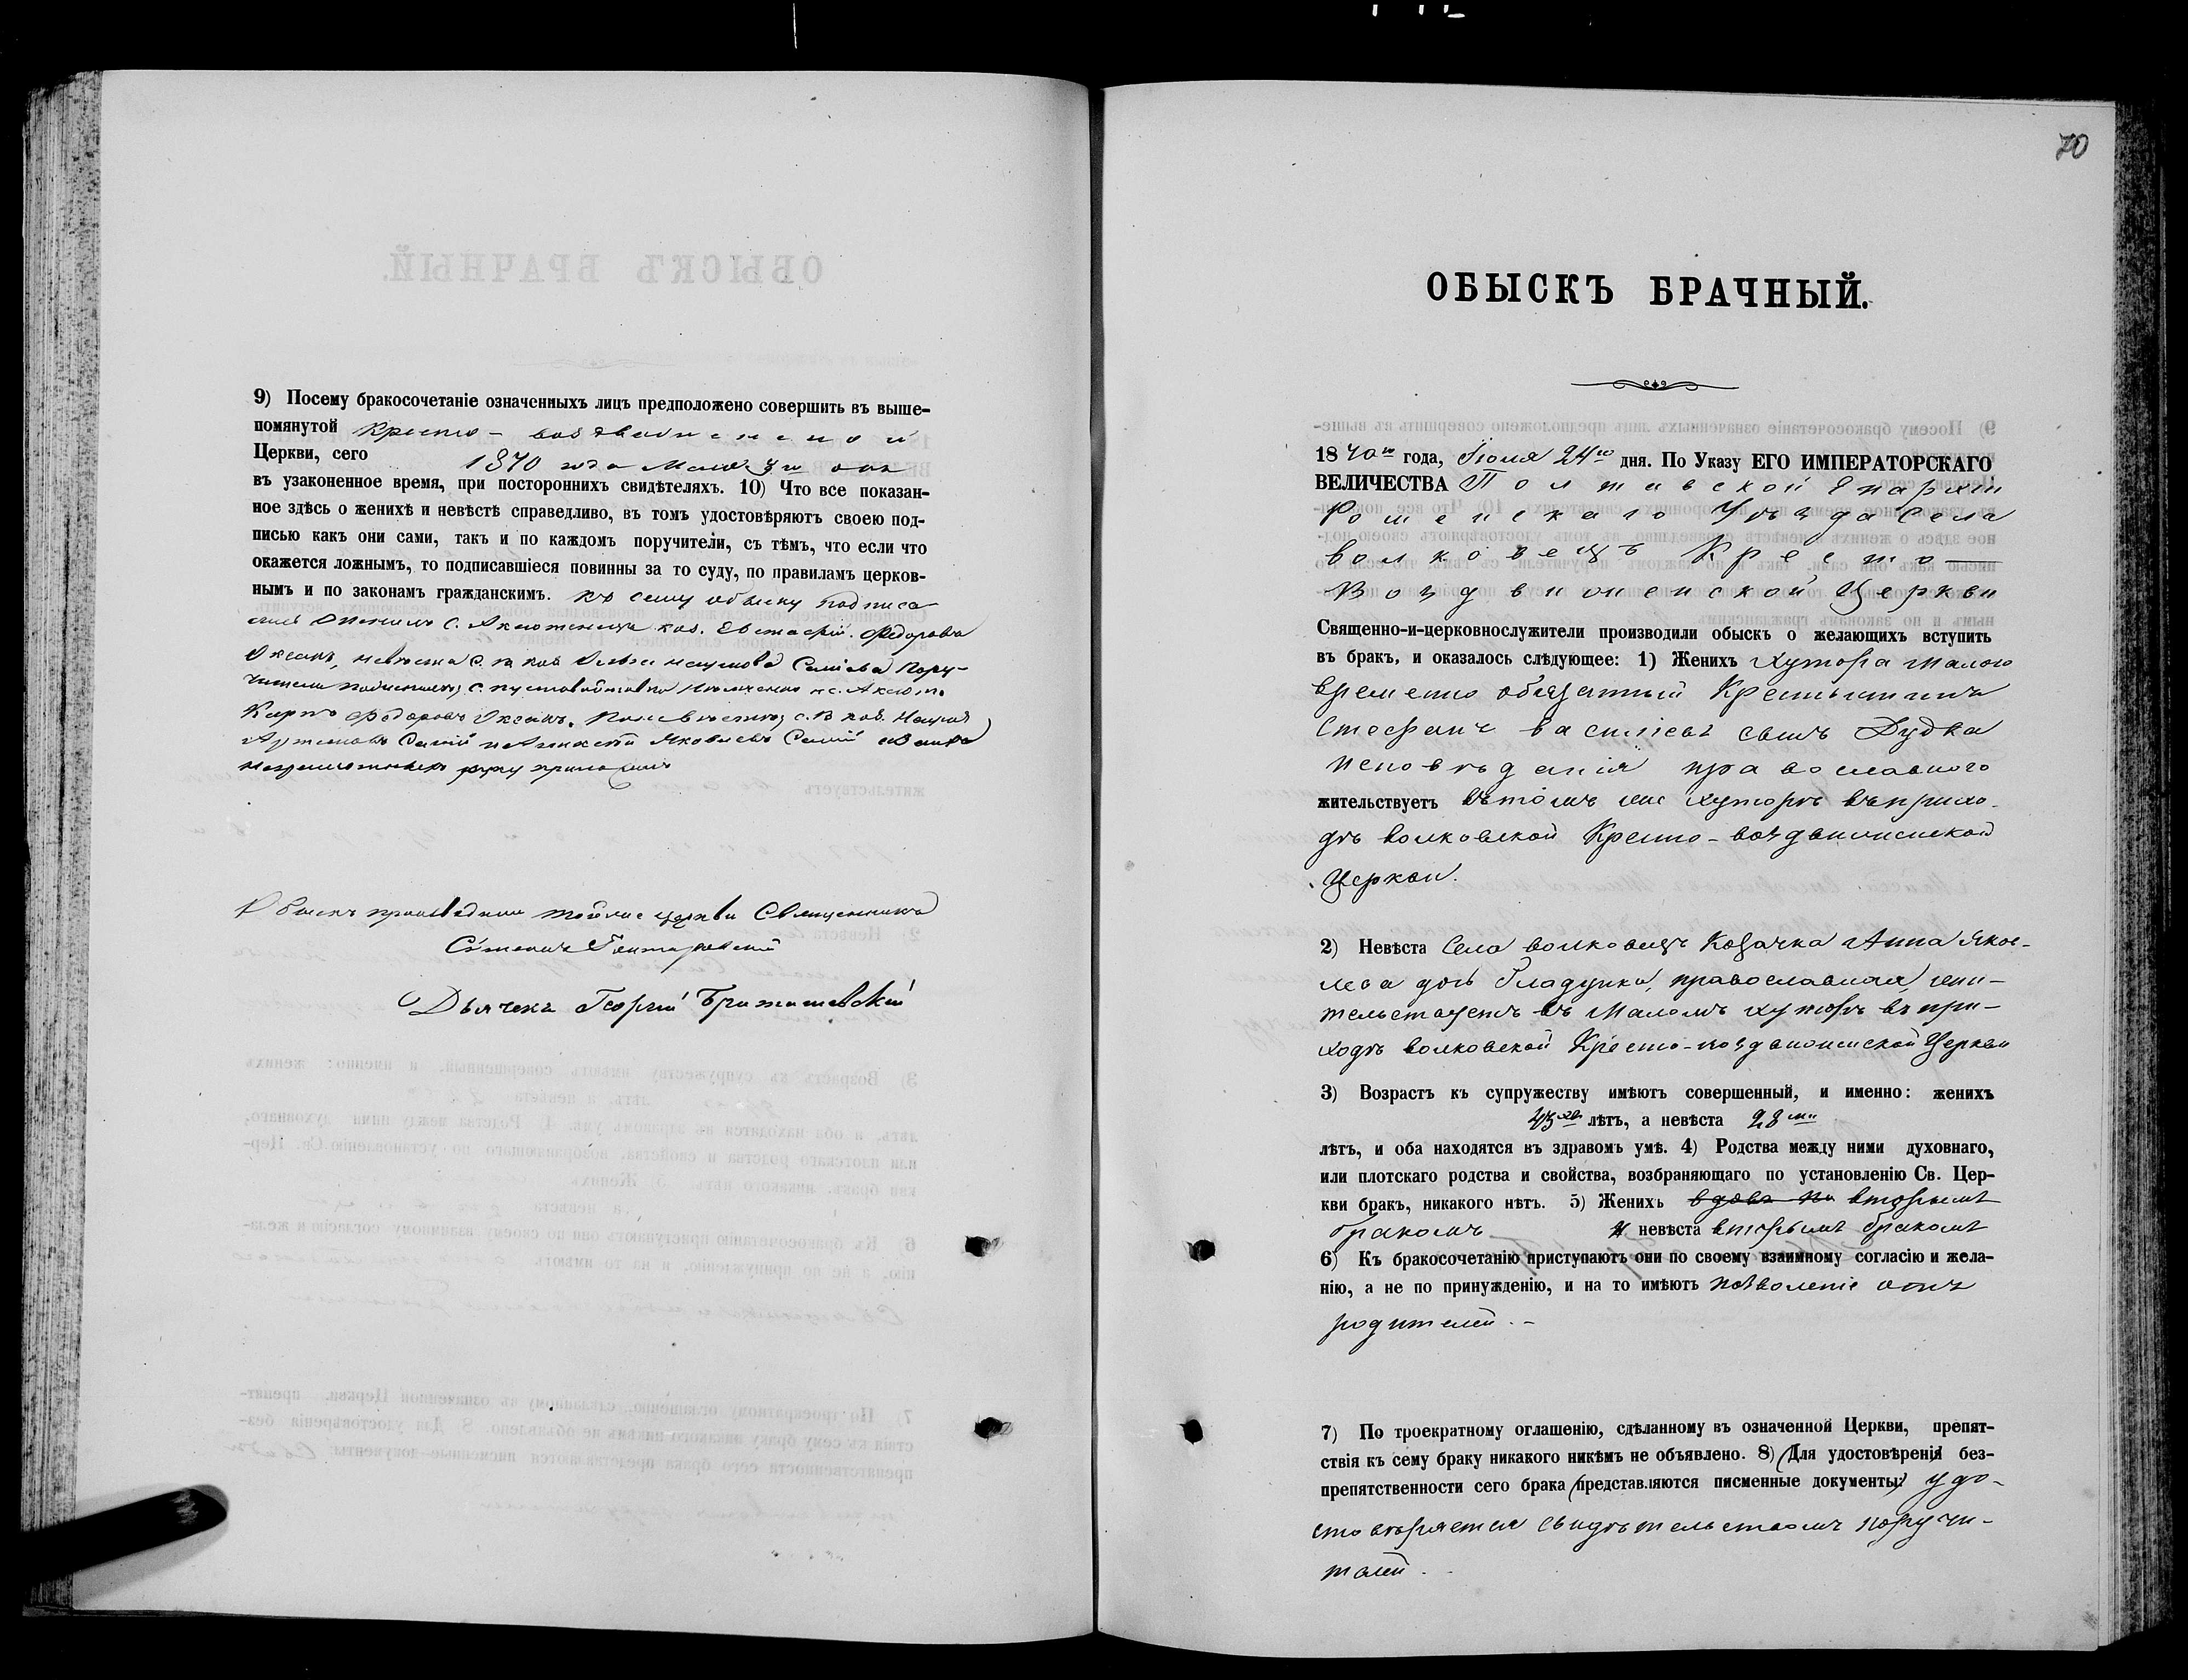 9) Посему бракосочетаніе означенныхъ лицъ предположено совершить въ выше-
помянутой Кресто-воздвиженской
Церкви, сего 1870 года
въ узаконенное время, при постороннихъ свидѣтеляхъ. 10) Что все показан-
ное здѣсь о женихѣ и невѣстѣ справедливо, въ томъ удостовѣряютъ своею под-
писью какъ они сами, такъ и по каждомъ поручители, съ тѣмъ, что если что
окажется ложнымъ, то подписавшіеся повинны за то суду, по правиламъ церков-
нымъ и по законамъ гражданскимъ. Къ сему обыску подписа-
лись женихъ с. Аксютенецъ каз. Евстафій Федоровъ
невеста с. В. Наумова Пору-
чители
Федоровъ с. В. каз. Наумъ
Яковлевъ
неграмотныхъ руку приложилъ
Обыскъ производили тойже церкви Священникъ
Дьячекъ Георгій
70
ОБЫСКЪ БРАЧНЫЙ.
1870го года, Іюля 24го дня. По Указу ЕГО ИМПЕРАТОРСКАГО
ВЕЛИЧЕСТВА Полтавской Епархіи
Роменскаго Уѣзда Села
Волковецъ Кресто-
Воздвиженской Церкви
Священно-и-церковнослужители производили обыскъ о желающихъ вступить
въ бракъ, и оказалось слѣдующее: 1) Женихъ Хутора Малого
временно обязанный Крестьянинъ
Стефанъ Василіевъ сынъ Дудка
исповѣданія православного
жительствуетъ въ томъ же хуторѣ въ прихо-
дѣ Волковской Кресто-воздвиженской
Церкви.
2) Невѣста Села Волковецъ Козачка Анна Яков-
лева дочь Гладунка, православная, жи-
тельствуетъ въ Маломъ хуторѣ въ при-
ходѣ Волковской Кресто-воздвиженской Церкви
3) Возрастъ къ супружеству имѣютъ совершенный, и именно: женихъ
43хъ лѣтъ, а невѣста 28ми
лѣтъ, и оба находятся въ здравомъ умѣ. 4) Родства между ними духовнаго,
или плотскаго родства и свойства, возбраняющаго по установленію Св. Цер-
кви бракъ, никакого нѣтъ. 5) Женихъ вторымъ
бракомъ и невѣста вторымъ бракомъ
6) Къ бракосочетанію приступаютъ они по своему взаимному согласію и жела-
нію, а не по принужденію, и на то имѣютъ позволеніе отъ
родителей.-
7) По троекратному оглашенію, сдѣланному въ означенной Церкви, препят-
ствія къ сему браку никакого никѣмъ не объявлено. 8) (Для удостовѣренія без-
препятственности сего брака (представляются писменные документы:) удо-
стовѣряется свидѣтельствомъ поручи-
телей.